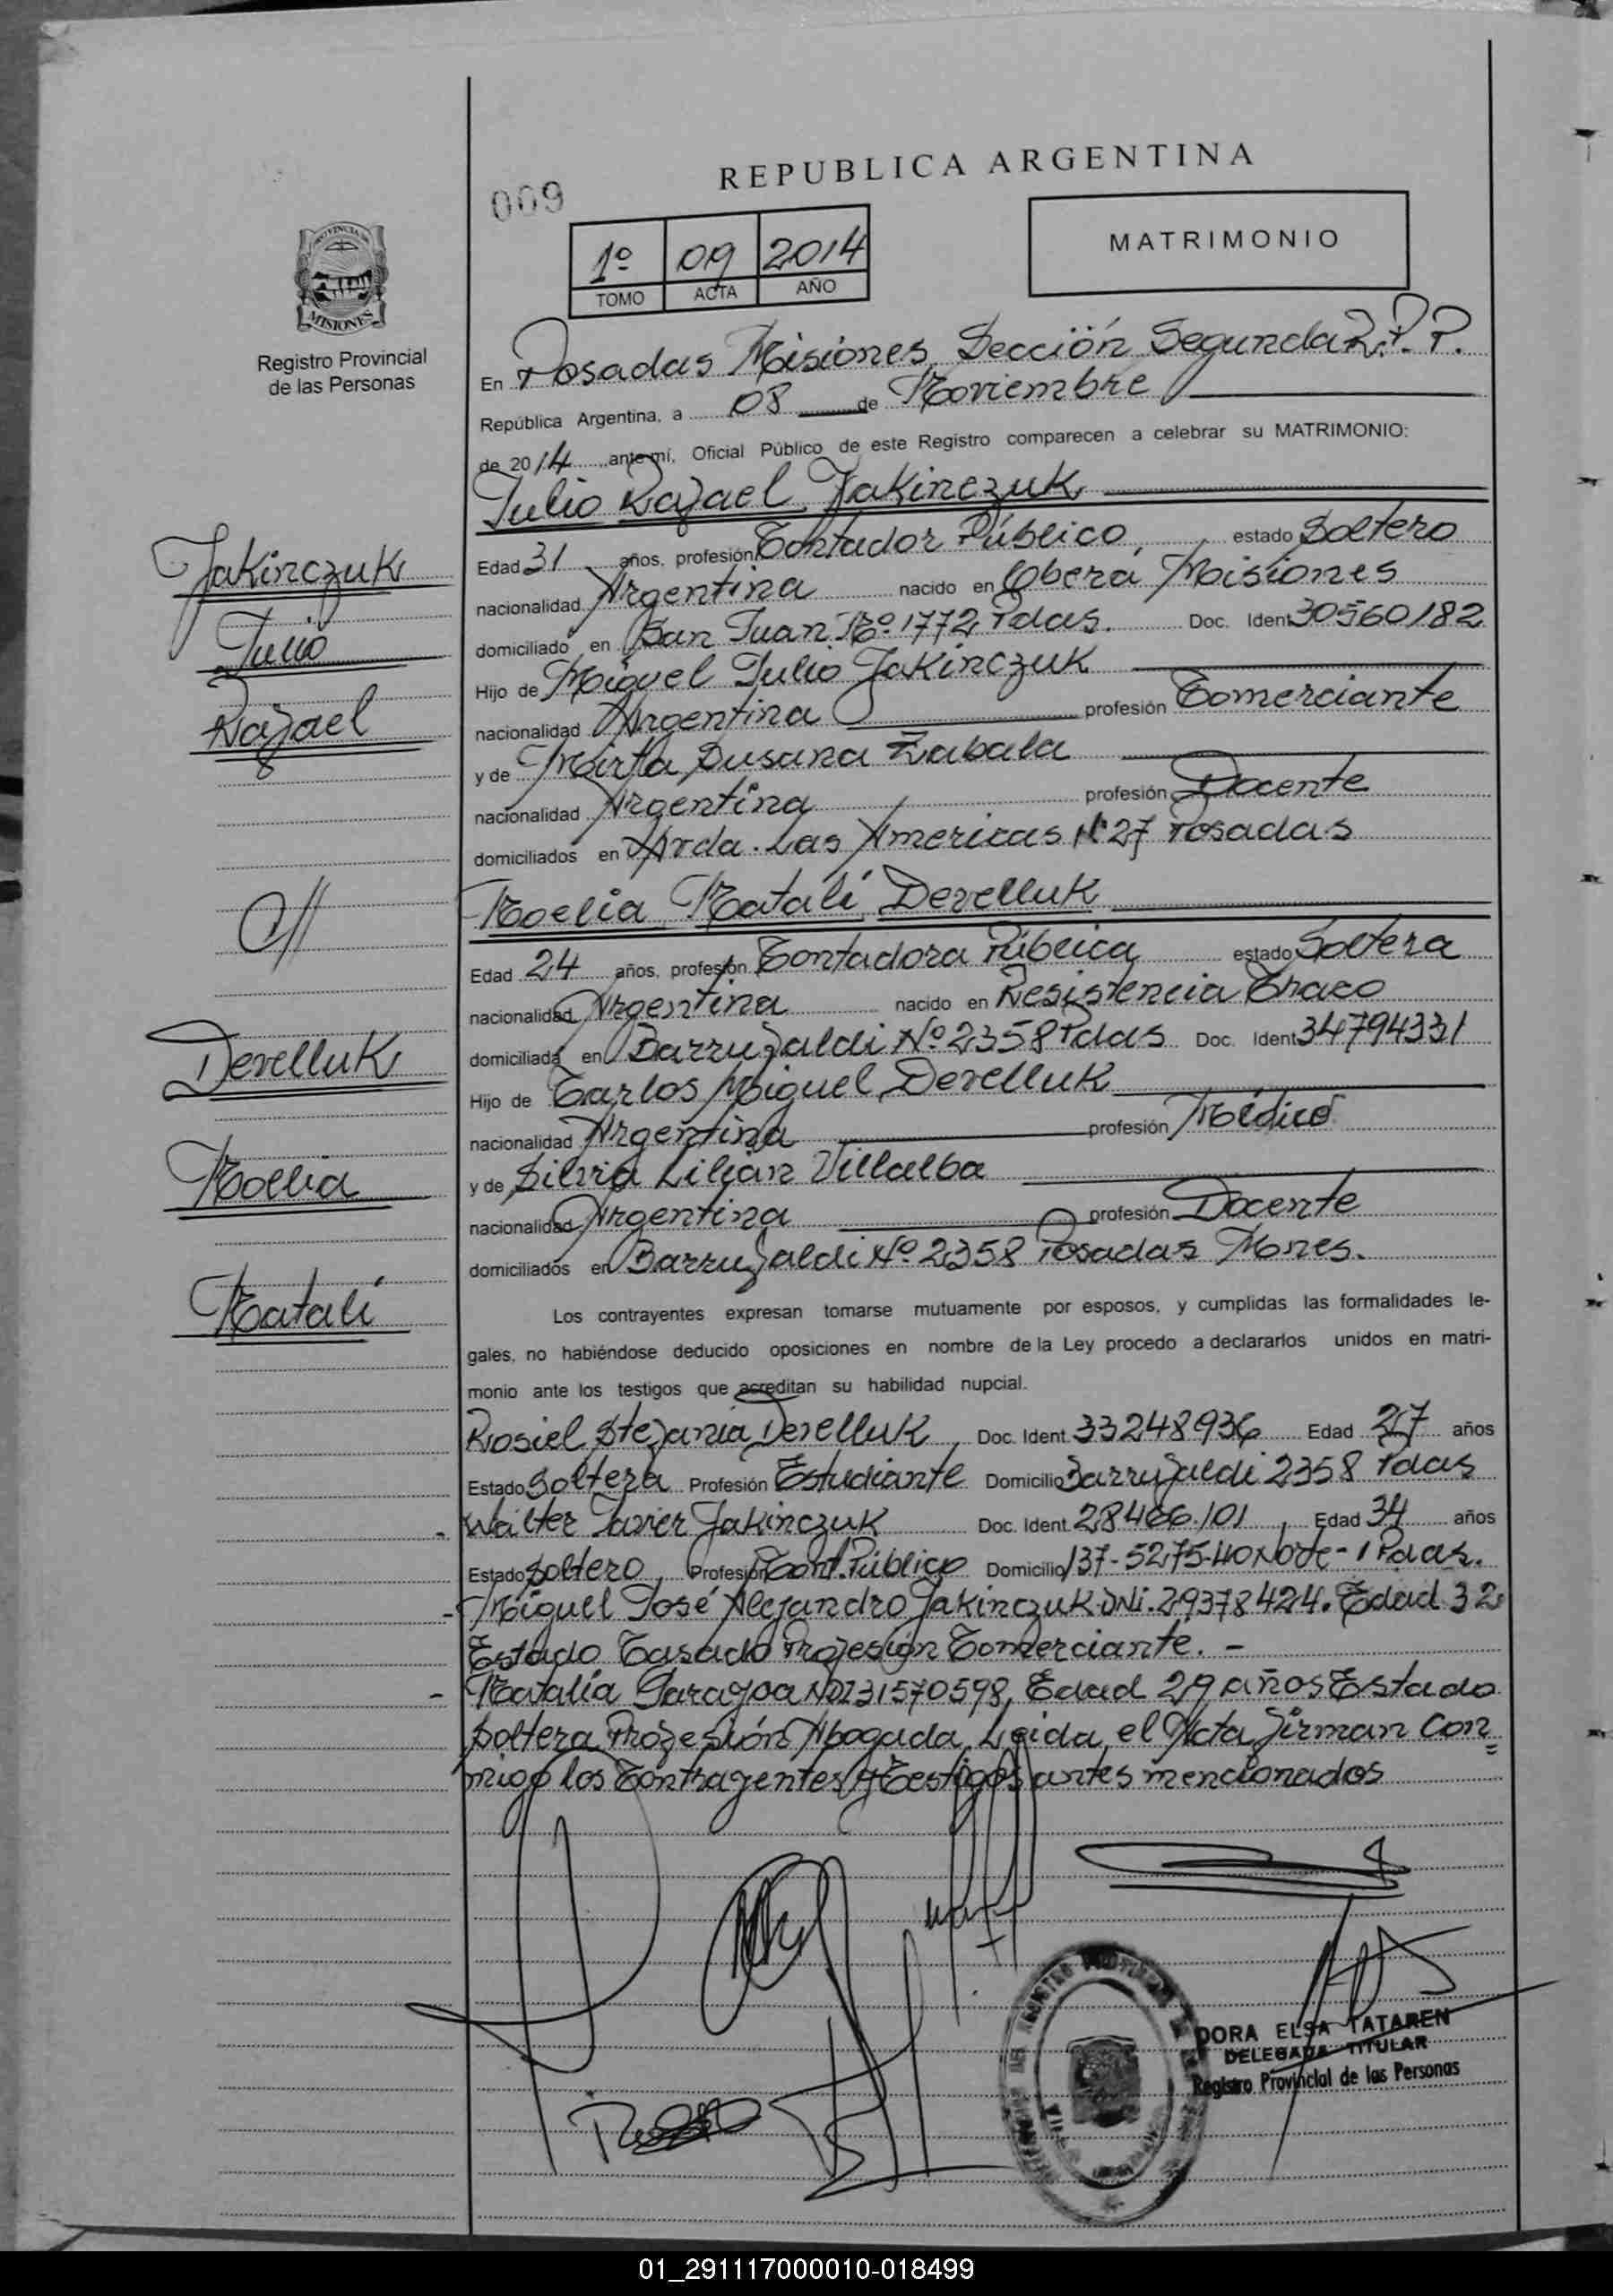 REPUBLICA ARGENTINA
009
1º 09 2014
TOMO ACTA AÑO
MATRIMONIO
PROVINCIA DE
MISIONES
Registro Provincial
de las Personas
En Posadas Misiones Sección Segunda R.P.P.
República Argentina, a 08 de Noviembre
de 2014 ante mí, Oficial Público de este Registro comparecen a celebrar su MATRIMONIO:
Julio Rafael Jakinczuk
Jakinczuk
Julio
Rafael
Edad 31 años, profesión Contador Público, estado Soltero
nacionalidad Argentina nacido en Oberá Misiones
domiciliado en San Juan Nº 1772 Pdas. Doc. Ident 30560182
Hijo de Miguel Julio Jakinczuk
nacionalidad Argentina profesión Comerciante
y de Mirta Susana Zabala
nacionalidad Argentina profesión Docente
domiciliados en Avda. Las Americas Nº 27 Posadas
Noelia Natalí Derelluk
Derelluk
Noelia
Natalí
Edad 24 años, profesión Contadora Pública estado Soltera
nacionalidad Argentina nacido en Resistencia Chaco
domiciliada en Barrufaldi Nº 2358 Pdas Doc. Ident 34794331
Hijo de Carlos Miguel Derelluk
nacionalidad Argentina profesión Médico
y de Silvia Lilian Villalba
nacionalidad Argentina profesión Docente
domiciliados en Barrufaldi Nº 2358 Posadas Mnes.
Los contrayentes expresan tomarse mutuamente por esposos, y cumplidas las formalidades le-
gales, no habiéndose deducido oposiciones en nombre de la Ley procedo a declararlos unidos en matri-
monio ante los testigos que acreditan su habilidad nupcial.
Rosiel Stefania Derelluk, Doc. Ident. 33248936 Edad 27 años
Estado Soltera Profesión Estudiante Domicilio Barrufaldi 2358 Pdas
- Walter Javier Jakinczuk Doc. Ident. 28466.101, Edad 34 años
Estado Soltero, Profesión Cont. Público Domicilio 137-5275-110 Norte-1 Pdas.
- Miguel José Alejandro Jakinczuk DNI. 29378424. Edad 32
Estado Casado Profesión Comerciante. -
- Natalia DNI 31570598, Edad 29 años Estado
Soltera Profesión Abogada, Leida el Acta firman con
migo los Contrayentes y Testigos antes mencionados
DORA ELSA TATAREN
DELEGADA TITULAR
Registro Provincial de las Personas
01_291117000010-018499